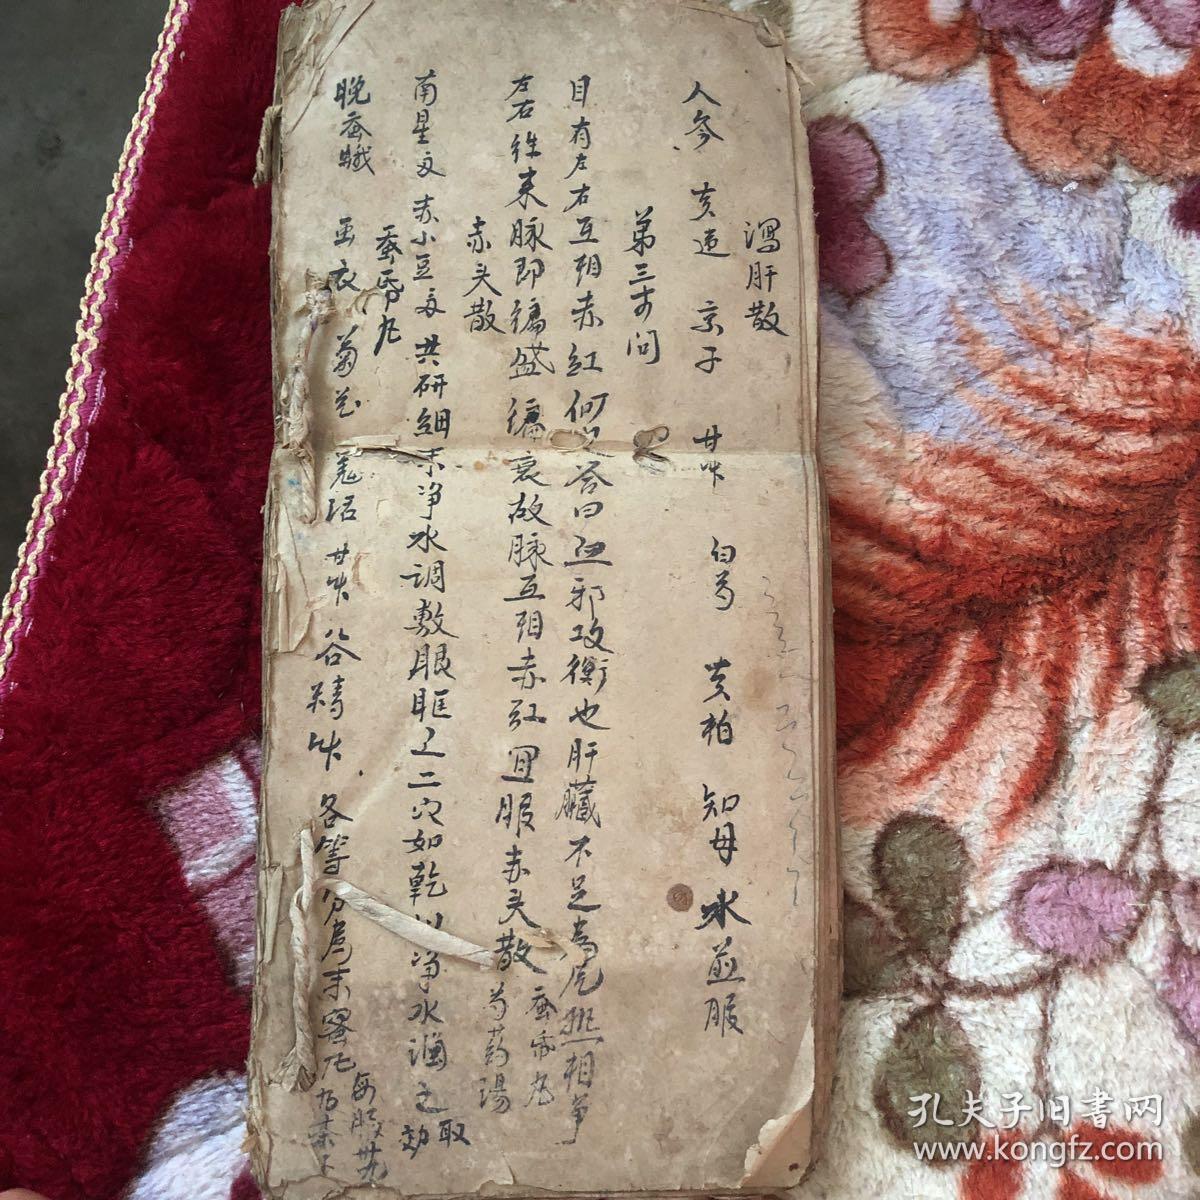 瀉肝散
人参 黄连 京子 甘草 白芍 黄柏 知母 水煎服
第三十問
目有左右互相赤紅何 答曰 邪攻衝也肝臟不足 熱相争
左右往来脉即偏盛偏衰故脉互相赤红宜服赤夹散 蚕 丸 芍药湯
赤夹散
南星 赤小豆 共研细末净水調敷眼眶之二穴如乾以净水润之取效
蚕 丸
晚蚕 衣 菊花 甘草 谷精草 各等分為末蜜 每服 九
孔夫子旧書网
www.kongfz.com